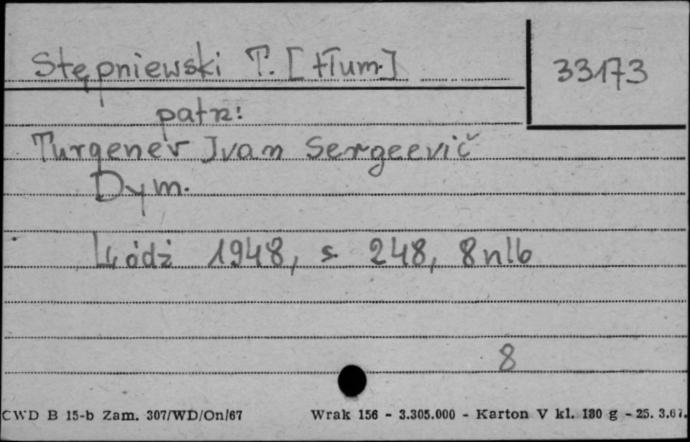 Stępniewski T. [tłum.] 33173
patrz:
Turgenev Ivan Sergeevič
Dym.
Łódź 1948, s. 248, 8 nlb
8
CWD B 15-b Zam. 307/WD/On/67 Wrak 156 - 3.305.000 - Karton V kl. 180 g - 25. 3.67.